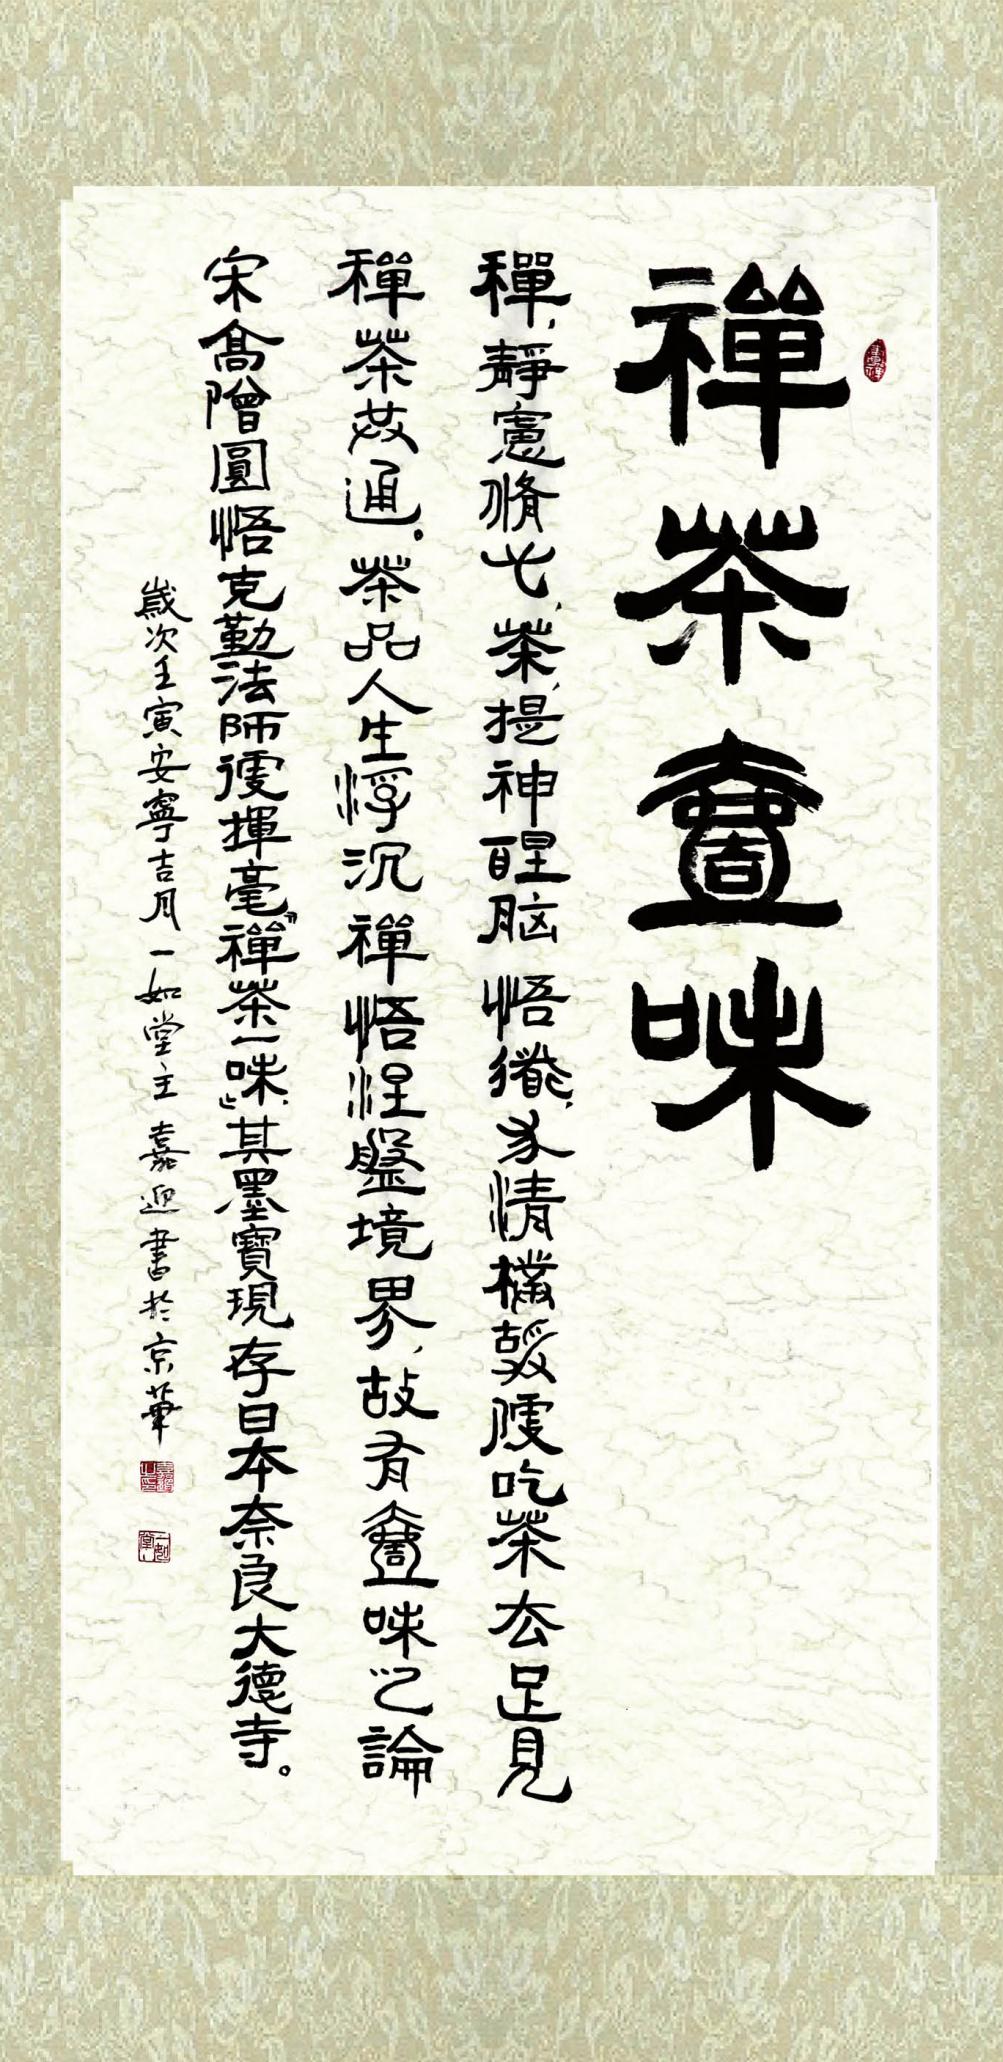 禪茶壹味
禪,靜慮脩心,茶,提神醒脑 悟後,求情機敦履吃茶去足見
禪茶茲通。茶品人生浮沉 禪悟涅盤境界,故有壹味之論
宋髙僧圓悟克勤法師後揮毫“禪茶一味”,其墨寶現存日本奈良大德寺。
歲次壬寅安寧吉月一如堂主嘉迎書於京華